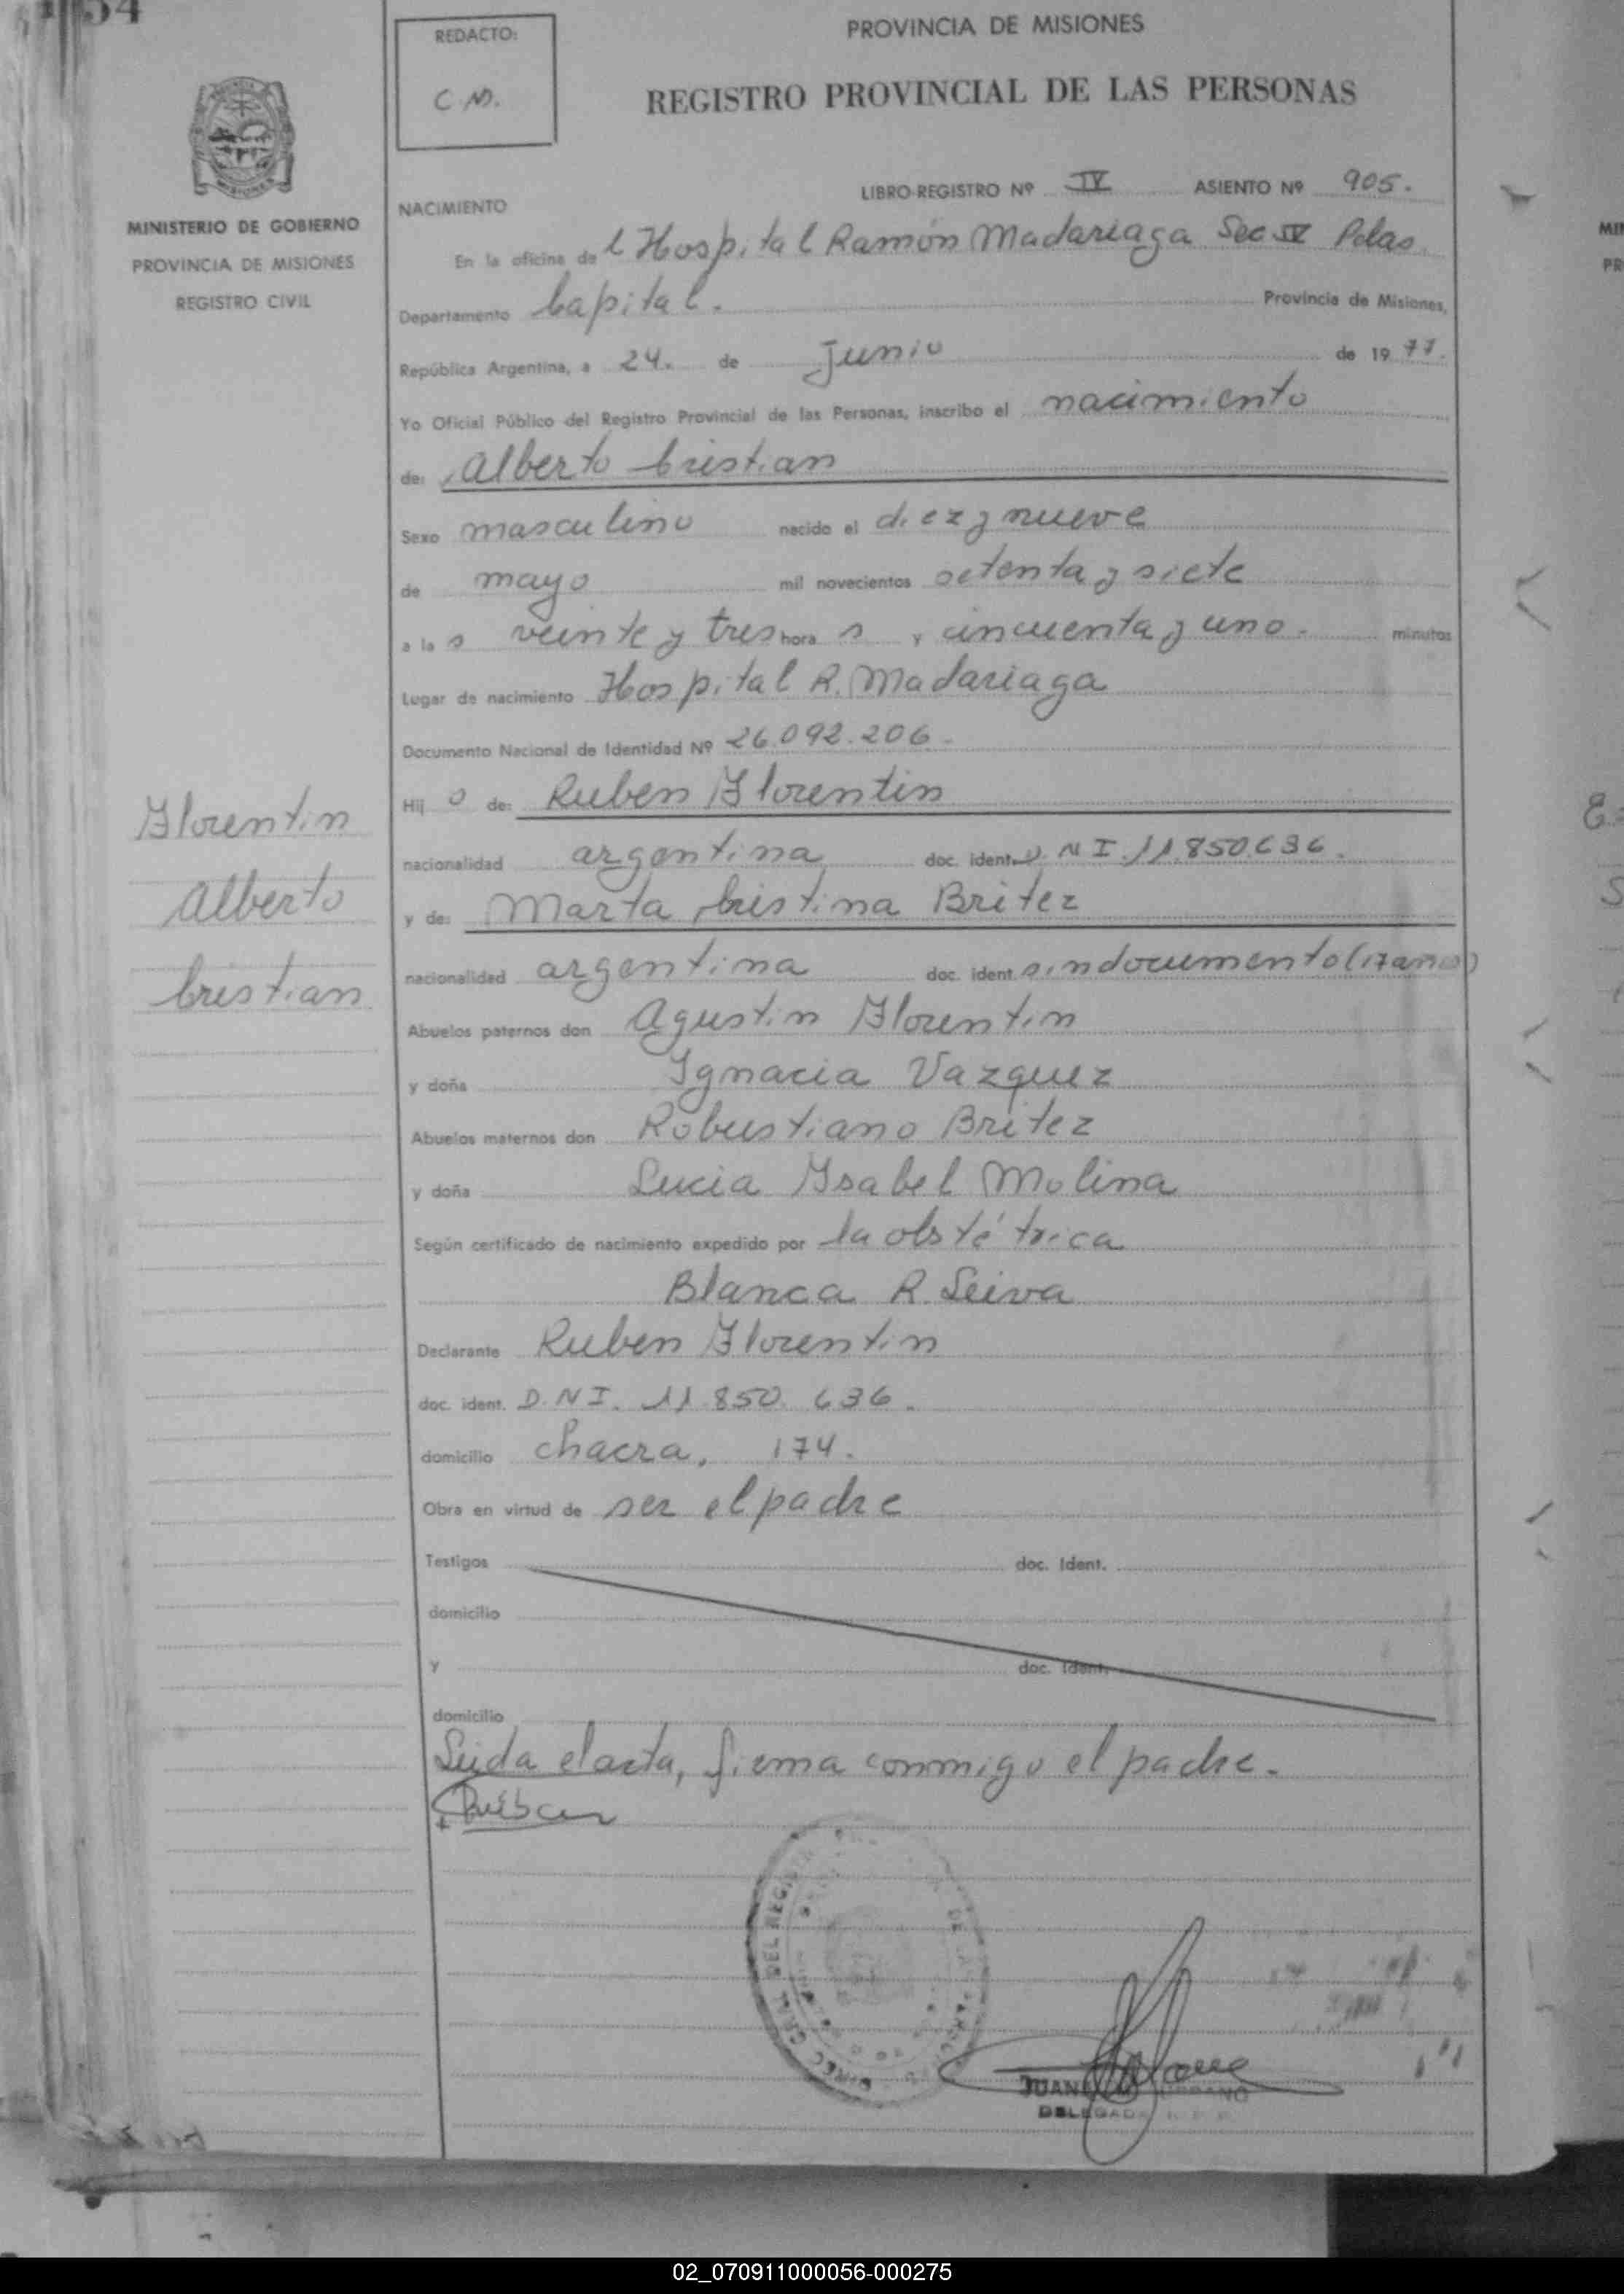 54
REDACTO:
C.M.
PROVINCIA DE MISIONES
REGISTRO PROVINCIAL DE LAS PERSONAS
MINISTERIO DE GOBIERNO
PROVINCIA DE MISIONES
REGISTRO CIVIL
LIBRO-REGISTRO Nº IV ASIENTO Nº 905.
NACIMIENTO
En la oficina del Hospital Ramón Madariaga Sec IV Pdas
Departamento Capital. Provincia de Misiones,
República Argentina, a 24. de Junio de 1977.
Yo Oficial Público del Registro Provincial de las Personas, inscribo el nacimiento
de: Alberto Cristian
Sexo masculino nacido el diez y nueve
de mayo mil novecientos setenta y siete
a la s veinte y tres hora s y cincuenta y uno. minutos
Lugar de nacimiento Hospital R. Madariaga
Documento Nacional de Identidad Nº 26.092.206.
Hij o de: Ruben Florentin
nacionalidad argentina doc. ident. D.N.I. 11.850.636.
y de: Marta Cristina Britez
nacionalidad argentina doc. ident. sin documento (17 años)
Abuelos paternos don Agustin Florentin
y doña Ignacia Vazquez
Abuelos maternos don Robustiano Britez
y doña Lucia Ysabel Molina
Según certificado de nacimiento expedido por la obstétrica
Blanca R. Leiva
Declarante Ruben Florentin
doc. ident. D.N.I. 11.850.636.
domicilio chacra, 174.
Obra en virtud de ser el padre
Testigos doc. Ident.
domicilio
y doc. Ident.
domicilio
Leida el acta, firma conmigo el padre.
Ruben
Florentin
Alberto
Cristian
DIREC GRAL DEL REGIS
JUAN
DELEGADA
02_070911000056-000275